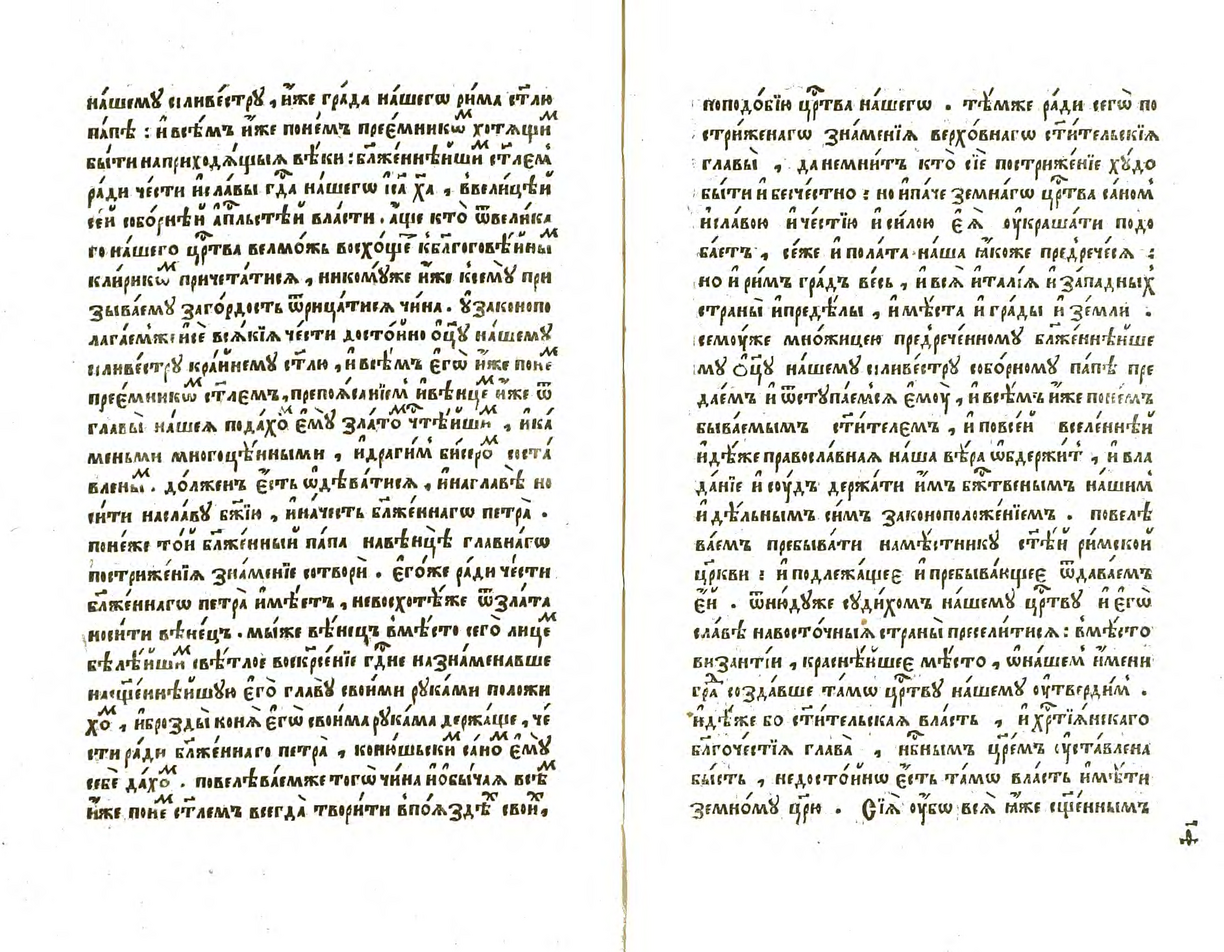 на́шемꙋ сїливе́стрꙋ , и҆́же гра́да на́шегѡ ри́ма ст҃лю
па́пѣ : и҆ всѣ́мъ и҆́же поне́мъ прее́мникѡⷨ хотѧ́щиⷨ
бы́ти наприходѧ́щыѧ вѣ́ки : бл҃же́ннѣйшиⷨ ст҃лемъ
ра́ди че́сти и҆ сла́вы гд҇а на́шегѡ і҆с҃а х҃а , ввели́цѣй
се́й собо́рнѣй а҆пⷭ҇льстѣй вла́сти . а҆́ще кто̀ ѿ вели́ка
го на́шего црⷭ҇тва велмо́жь восхо́щеⷮ кблагоговѣ́йныⷨ
кли́рикѡⷨ причета́тисѧ , никомꙋ́же и҆́же ксемꙋ̀ при
зыва́емꙋ заго́рдость ѿрица́тисѧ чи́на . ᲂу҆законопо
лага́емже и҆ сѐ всѧ́кїѧ че́сти досто́йно ѻ҆ц҃ꙋ̀ на́шемꙋ
сїливе́стрꙋ кра́йнемꙋ ст҃лю , и҆ всѣ́мъ є҆гѡ̀ и҆́же понеⷨ
прее́мникѡⷨ ст҃лемъ , препоѧ́санїемъ и҆ вѣнце́ⷨ и҆́же ѿ
главы̀ на́шеѧ пода́хоⷨ є҆мꙋ̀ злато́ⷨ чⷭ҇тѣ́йшиⷨ , и҆ ка́
меньми многоцѣ́нными , и҆ драги́мъ би́серомъ соста́
вленыⷨ . до́лженъ є҆́сть ѡ҆дѣва́тисѧ , и҆ наглавѣ̀ но
си́ти насла́вꙋ бж҃їю , и҆ на че́сть бл҃же́ннагѡ петра̀ .
поне́же то́й бл҃же́нный па́па на вѣнцѣ̀ главна́гѡ
пострижє́нїѧ зна́менїе сотворѝ . є҆гѡ́же ра́ди че́сти
бл҃же́ннагѡ петра̀ и҆мѣ́етъ , невосхотѣ́же ѿ зла́та
носи́ти вѣне́цъ . мы́же вѣне́цъ вмѣ́сто сего̀ лицеⷨ
бѣлѣ́йшиⷨ свѣ́тлое воскрⷭ҇е́нїе гдⷭ҇не назна́менавше
насщ҃е́ннѣйшꙋю є҆го̀ главꙋ̀ свои́ми рꙋка́ми положи
хоⷨ , и҆ брозды̀ конѧ̀ є҆гѡ̀ свои́ма рꙋка́ма держа́ще , че́
сти ра́ди бл҃же́ннаго петра̀ , коню́шьскиⷨ са́ноⷨ є҆мꙋ̀
себѐ да́хоⷨ . повелѣва́емже тогѡ̀ чи́на и҆ ѻ҆бы́чаѧ всѣⷨ
и҆́же понеⷨ ст҃лемъ всегда̀ твори́ти впоѧ́здѣⷯ свои́ⷯ ,
поподо́бїю црⷭ҇тва на́шегѡ . тѣ́мже ра́ди сегѡ̀ по
стри́женагѡ зна́менїѧ верхо́внагѡ ст҃и́тельскїѧ
главы̀ , да немни́тъ кто̀ сїѐ постриже́нїе хꙋ́до
бы́ти и҆ бесче́стно : но и҆ па́че земна́гѡ црⷭ҇тва са́номъ
и҆ сла́вою и҆ че́стїю и҆ си́лою є҆ѧ̀ ᲂу҆краша́ти подо
ба́етъ , се́же и҆ пола́та на́ша ꙗ҆́коже предрече́сѧ :
но и҆ ри́мъ гра́дъ ве́сь , и҆ всѧ̀ и҆талі́ѧ и҆ за́падныⷯ
страны̀ и҆ предѣ́лы , и҆ мѣ́ста и҆ гра́ды и҆ зе́мли .
семᲂу́же мно́жицею предрече́нномꙋ бл҃же́ннѣйше
мꙋ ѻ҆ц҃ꙋ̀ на́шемꙋ сїливе́стрꙋ собо́рномꙋ па́пѣ пре
дае́мъ и҆ ѿстꙋпа́емсѧ є҆мᲂу̀ , и҆ всѣ́мъ и҆́же поне́мъ
быва́емымъ ст҃и́телемъ , и҆ повсе́й вселе́ннѣй
и҆дѣ́же правосла́внаѧ на́ша вѣ́ра ѡ҆бдержи́тъ , и҆ вла
да́нїе и҆ сᲂу́дъ держа́ти и҆́мъ бжⷭ҇твенымъ на́шимъ
и҆ дѣ́льнымъ си́мъ законоположе́нїемъ . повелѣ
ва́емъ пребыва́ти намѣ́стникꙋ ст҃ѣ́й ри́мской
цр҃кви : и҆ подлежа́щеє и҆ пребыва́ющеє ѿдава́емъ
є҆́й . ѿни́дꙋже сꙋди́хомъ на́шемꙋ црⷭ҇твꙋ и҆ є҆гѡ̀
сла́вѣ навосто́чныѧ страны̀ пресели́тисѧ : вмѣ́сто
византі́и , краснѣ́йшеє мѣ́сто , ѡ҆ на́шемъ и҆́мени
граⷣ созда́вше та́мѡ црⷭ҇твꙋ на́шемꙋ ᲂу҆тверди́мъ .
и҆дѣ́же бо ст҃и́тельскаѧ вла́сть , и҆ хрⷭ҇тїѧ́нскаго
бл҃гоче́стїѧ глава̀ , нб҃нымъ цр҃е́мъ ᲂу҆ста́влена
бы́сть , недосто́йнѡ є҆́сть та́мѡ вла́сть и҆мѣ́ти
земно́мꙋ цр҃ю̀ . Сїѧ̀ ᲂу҆́бѡ всѧ̀ ꙗ҆́же сщ҃е́ннымъ